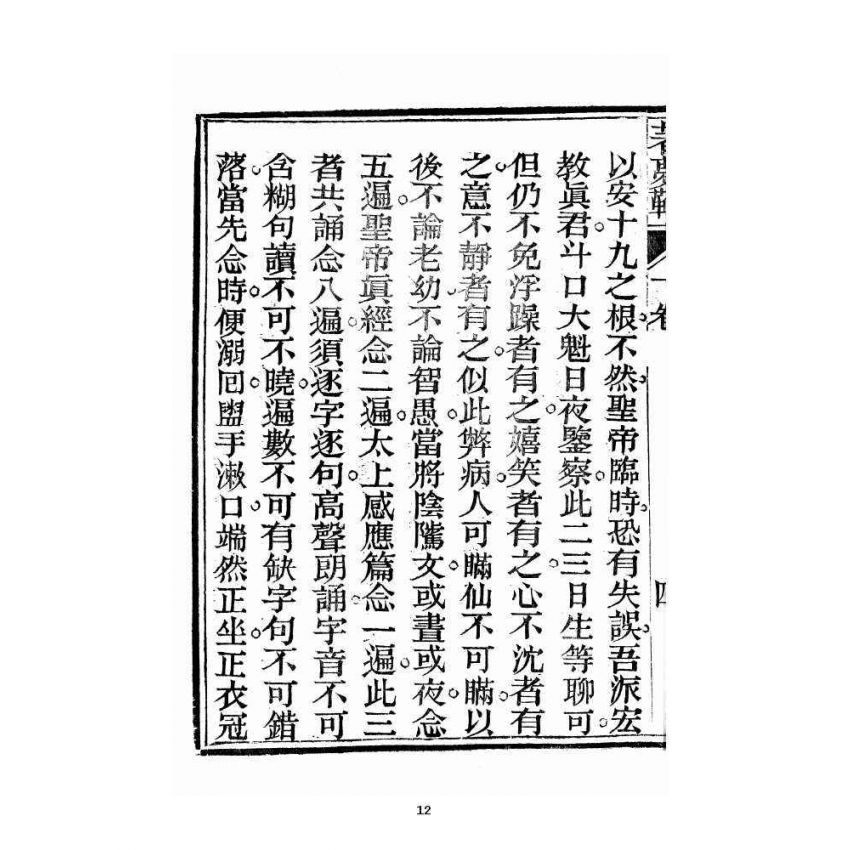 以安十九之根不然聖帝臨時恐有失誤吾派宏
教眞君斗口大魁日夜鑒察此二三日生等聊可
但仍不免浮躁者有之嬉笑者有之心不沈者有
之意不靜者有之似此弊病人可瞞仙不可瞞以
後不論老幼不論智愚當將陰隲文或晝或夜念
五遍聖帝眞經念二遍太上感應篇念一遍此三
者共誦念八遍須逐字逐句高聲朗誦字音不可
含糊句讀不可不曉遍數不可有缺字句不可錯
落當先念時便溺回盥手漱口端然正坐正衣冠
12